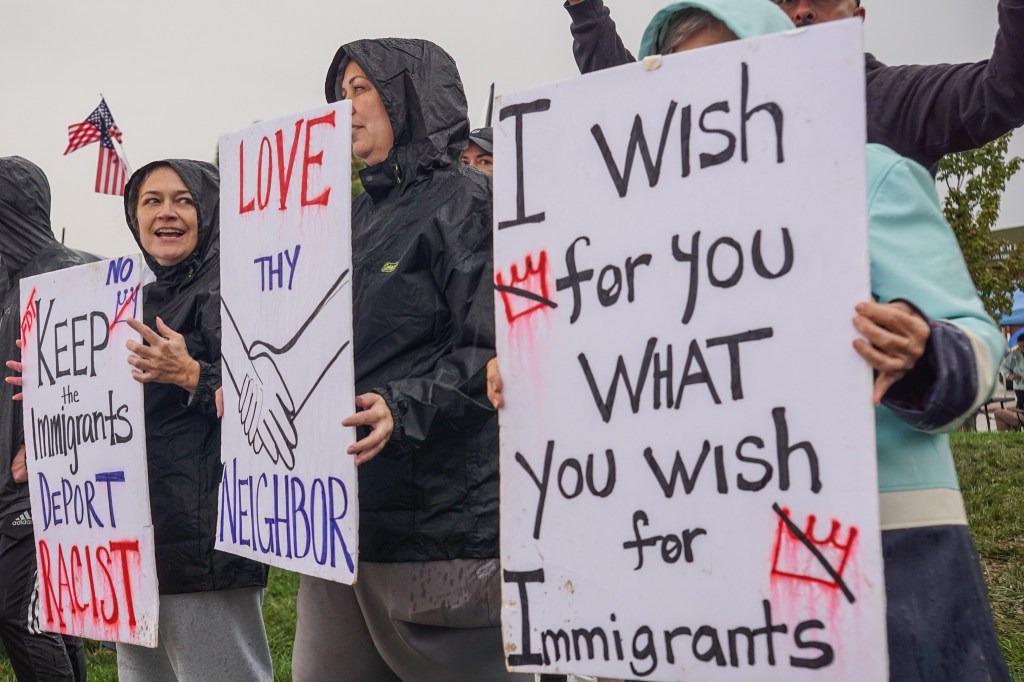 NO
KEEP
the
Immigrants
DEPORT
RACIST
LOVE
THY
NEIGHBOR
I WISH
for YOU
WHAT
YOU WISH
for
Immigrants
adidas